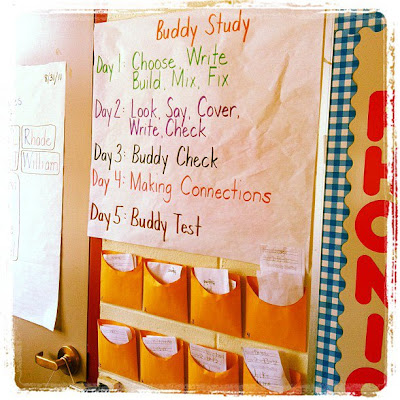 Buddy Study
Day 1: Choose, Write
Build, Mix, Fix
Day 2: Look, Say, Cover,
Write, Check
Day 3: Buddy Check
Day 4: Making Connections
Day 5: Buddy Test
8/31/11
Rhode
William
PHONIC